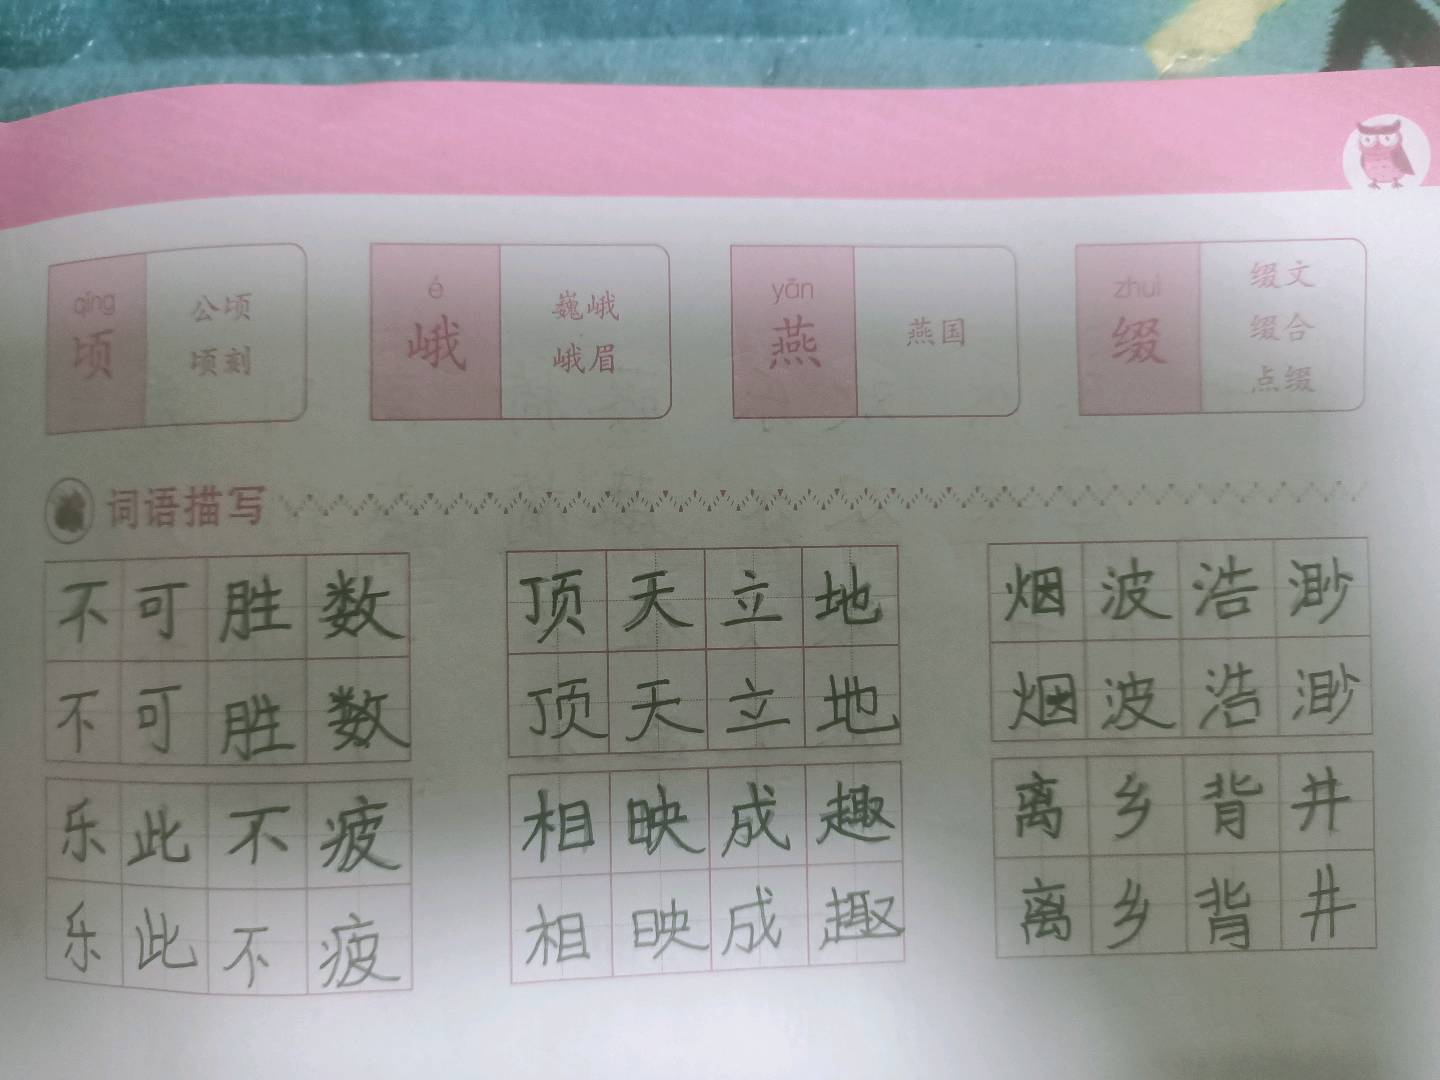 qǐng é yān zhuì
顷 公顷 顷刻 峨 巍峨 峨眉 燕 燕国 缀 缀文 缀合 点缀
词语描写
不可胜数 顶天立地 烟波浩渺
不可胜数 顶天立地 烟波浩渺
乐此不疲 相映成趣 离乡背井
乐此不疲 相映成趣 离乡背井